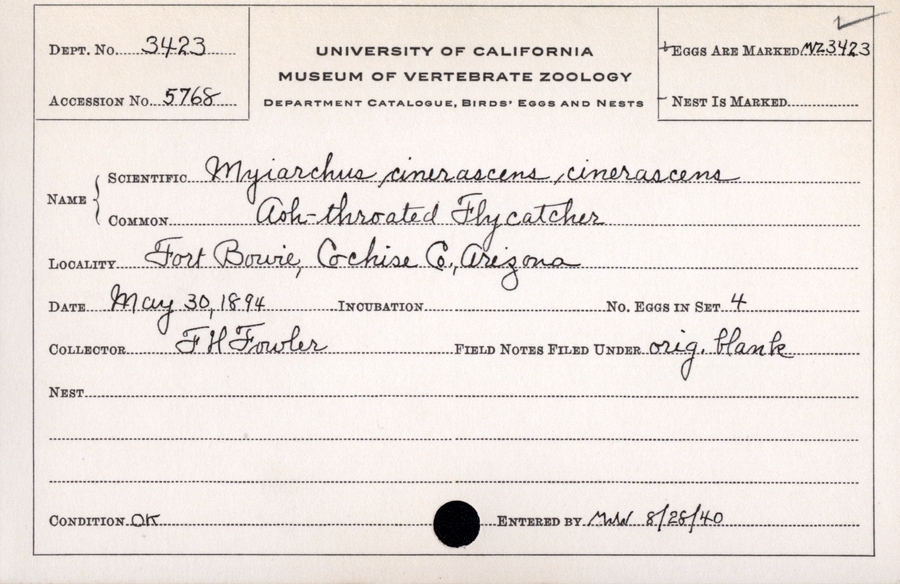 Dept. No. 3423
Accession No. 5768
UNIVERSITY OF CALIFORNIA
MUSEUM OF VERTEBRATE ZOOLOGY
Department Catalogue, Birds' Eggs and Nests
Eggs Are Marked MZ3423
Nest Is Marked
Name
Scientific Myiarchus cinerascens cinerascens
Common Ash-throated Flycatcher
Locality Fort Bowie, Cochise Co., Arizona
Date May 30, 1894 Incubation No. Eggs in Set 4
Collector F H Fowler Field Notes Filed Under orig. blank
Nest
Condition OK Entered by 8/28/40